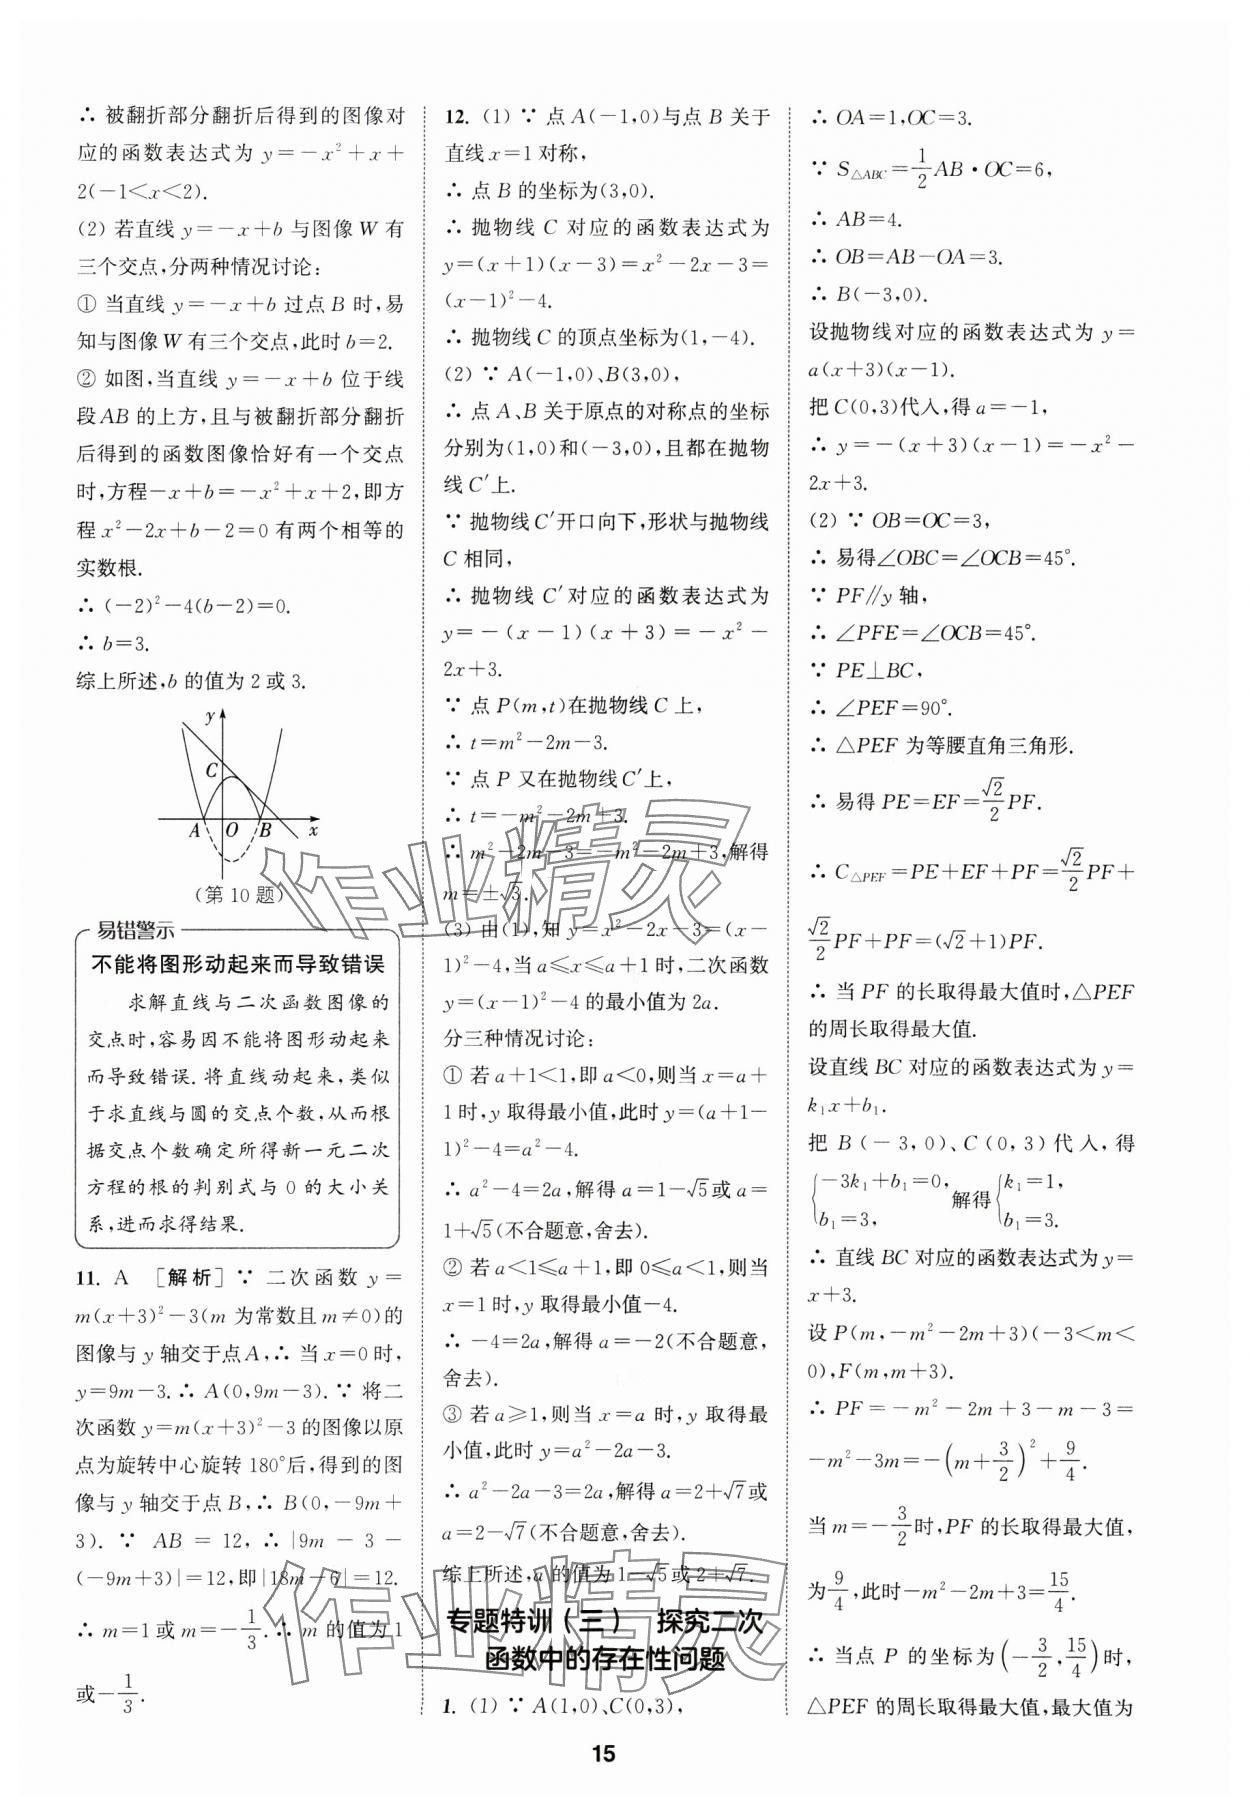 ∴ 被翻折部分翻折后得到的图像对
应的函数表达式为 y=-x²+x+
2(-1<x<2).
(2) 若直线 y=-x+b 与图像 W 有
三个交点,分两种情况讨论:
① 当直线 y=-x+b 过点 B 时,易
知与图像 W 有三个交点,此时 b=2.
② 如图,当直线 y=-x+b 位于线
段 AB 的上方,且与被翻折部分翻折
后得到的函数图像恰好有一个交点
时,方程-x+b=-x²+x+2,即方
程 x²-2x+b-2=0 有两个相等的
实数根.
∴ (-2)²-4(b-2)=0.
∴ b=3.
综上所述,b 的值为 2 或 3.
y
C
A O B x
(第 10 题)
易错警示
不能将图形动起来而导致错误
求解直线与二次函数图像的
交点时,容易因不能将图形动起来
而导致错误. 将直线动起来,类似
于求直线与圆的交点个数,从而根
据交点个数确定所得新一元二次
方程的根的判别式与 0 的大小关
系,进而求得结果.
11. A [解析] ∵ 二次函数 y=
m(x+3)²-3(m 为常数且 m≠0)的
图像与 y 轴交于点 A,∴ 当 x=0 时,
y=9m-3. ∴ A(0,9m-3). ∵ 将二
次函数 y=m(x+3)²-3 的图像以原
点为旋转中心旋转 180°后,得到的图
像与 y 轴交于点 B,∴ B(0,-9m+
3). ∵ AB = 12, ∴ |9m - 3 -
(-9m+3)|=12,即|18m-6|=12.
∴ m=1 或 m=-1/3. ∴ m 的值为 1
或-1/3.
12. (1) ∵ 点 A(-1,0)与点 B 关于
直线 x=1 对称,
∴ 点 B 的坐标为(3,0).
∴ 抛物线 C 对应的函数表达式为
y=(x+1)(x-3)=x²-2x-3=
(x-1)²-4.
∴ 抛物线 C 的顶点坐标为(1,-4).
(2) ∵ A(-1,0)、B(3,0),
∴ 点 A、B 关于原点的对称点的坐标
分别为(1,0)和(-3,0),且都在抛物
线 C′上.
∵ 抛物线 C′开口向下,形状与抛物线
C 相同,
∴ 抛物线 C′对应的函数表达式为
y=-(x-1)(x+3)=-x²-
2x+3.
∵ 点 P(m,t)在抛物线 C 上,
∴ t=m²-2m-3.
∵ 点 P 又在抛物线 C′上,
∴ t=-m²-2m+3.
∴ m²-2m-3=-m²-2m+3,解得
m=±√3.
(3) 由(1),知 y=x²-2x-3=(x-
1)²-4,当 a≤x≤a+1 时,二次函数
y=(x-1)²-4 的最小值为 2a.
分三种情况讨论:
① 若 a+1<1,即 a<0,则当 x=a+
1 时,y 取得最小值,此时 y=(a+1-
1)²-4=a²-4.
∴ a²-4=2a,解得 a=1-√5或 a=
1+√5(不合题意,舍去).
② 若 a<1≤a+1,即 0≤a<1,则当
x=1 时,y 取得最小值-4.
∴ -4=2a,解得 a=-2(不合题意,
舍去).
③ 若 a≥1,则当 x=a 时,y 取得最
小值,此时 y=a²-2a-3.
∴ a²-2a-3=2a,解得 a=2+√7或
a=2-√7(不合题意,舍去).
综上所述,a 的值为 1-√5或 2+√7.
专题特训(三) 探究二次
函数中的存在性问题
1. (1) ∵ A(1,0)、C(0,3),
∴ OA=1,OC=3.
∵ S△ABC=1/2AB·OC=6,
∴ AB=4.
∴ OB=AB-OA=3.
∴ B(-3,0).
设抛物线对应的函数表达式为 y=
a(x+3)(x-1).
把 C(0,3)代入,得 a=-1,
∴ y=-(x+3)(x-1)=-x²-
2x+3.
(2) ∵ OB=OC=3,
∴ 易得∠OBC=∠OCB=45°.
∵ PF∥y 轴,
∴ ∠PFE=∠OCB=45°.
∵ PE⊥BC,
∴ ∠PEF=90°.
∴ △PEF 为等腰直角三角形.
∴ 易得 PE=EF=√2/2PF.
∴ C△PEF=PE+EF+PF=√2/2PF+
√2/2PF+PF=(√2+1)PF.
∴ 当 PF 的长取得最大值时,△PEF
的周长取得最大值.
设直线 BC 对应的函数表达式为 y=
k₁x+b₁.
把 B(-3,0)、C(0,3)代入,得
{-3k₁+b₁=0, b₁=3, 解得{k₁=1, b₁=3.
∴ 直线 BC 对应的函数表达式为 y=
x+3.
设 P(m,-m²-2m+3)(-3<m<
0),F(m,m+3).
∴ PF=-m²-2m+3-m-3=
-m²-3m=-(m+3/2)²+9/4.
当 m=-3/2时,PF 的长取得最大值,
为9/4,此时-m²-2m+3=15/4.
∴ 当点 P 的坐标为(-3/2,15/4)时,
△PEF 的周长取得最大值,最大值为
15
作业精灵
作业精灵